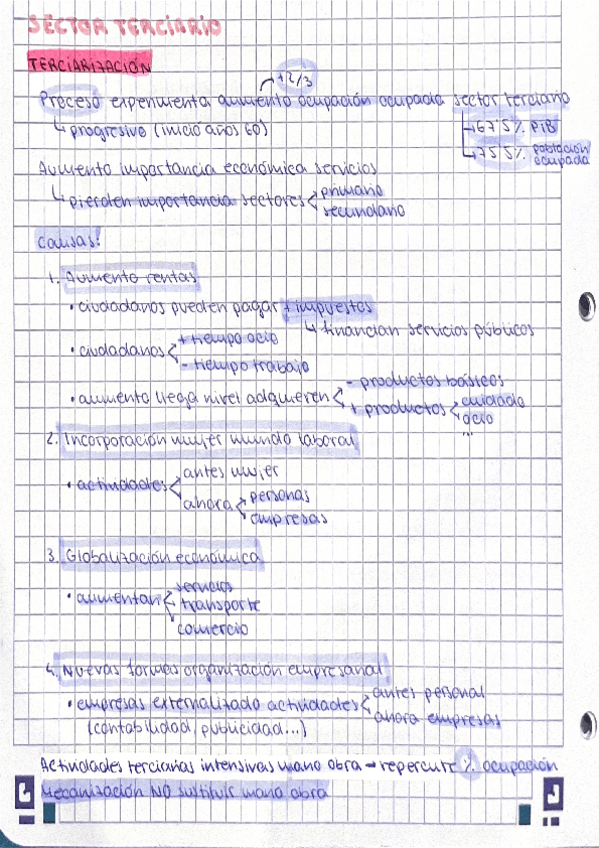 SECTOR TERCIARIO
TERCIARIZACIÓN
+2/3
Proceso experimenta aumento ocupación ocupada sector terciario
↳ progresivo (inicio años 60)
↳ 67'5% PIB
↳ 75'5% población ocupada
Aumento importancia económica servicios
↳ pierden importancia sectores < primario
secundario
Causas:
1. Aumento rentas
• ciudadanos pueden pagar + impuestos
↳ financian servicios públicos
• ciudadanos < + tiempo ocio
- tiempo trabajo
• aumento llega nivel adquieren < - productos básicos
+ productos < cuidado
ocio
...
2. Incorporación mujer mundo laboral
• actividades < antes mujer
ahora < personas
empresas
3. Globalización económica
• aumentan < servicios
transporte
comercio
4. Nuevas formas organización empresarial
• empresas externalizado actividades < antes personal
(contabilidad, publicidad...) ahora empresas
Actividades terciarias intensivas mano obra → repercute % ocupación
Mecanización NO sustituir mano obra